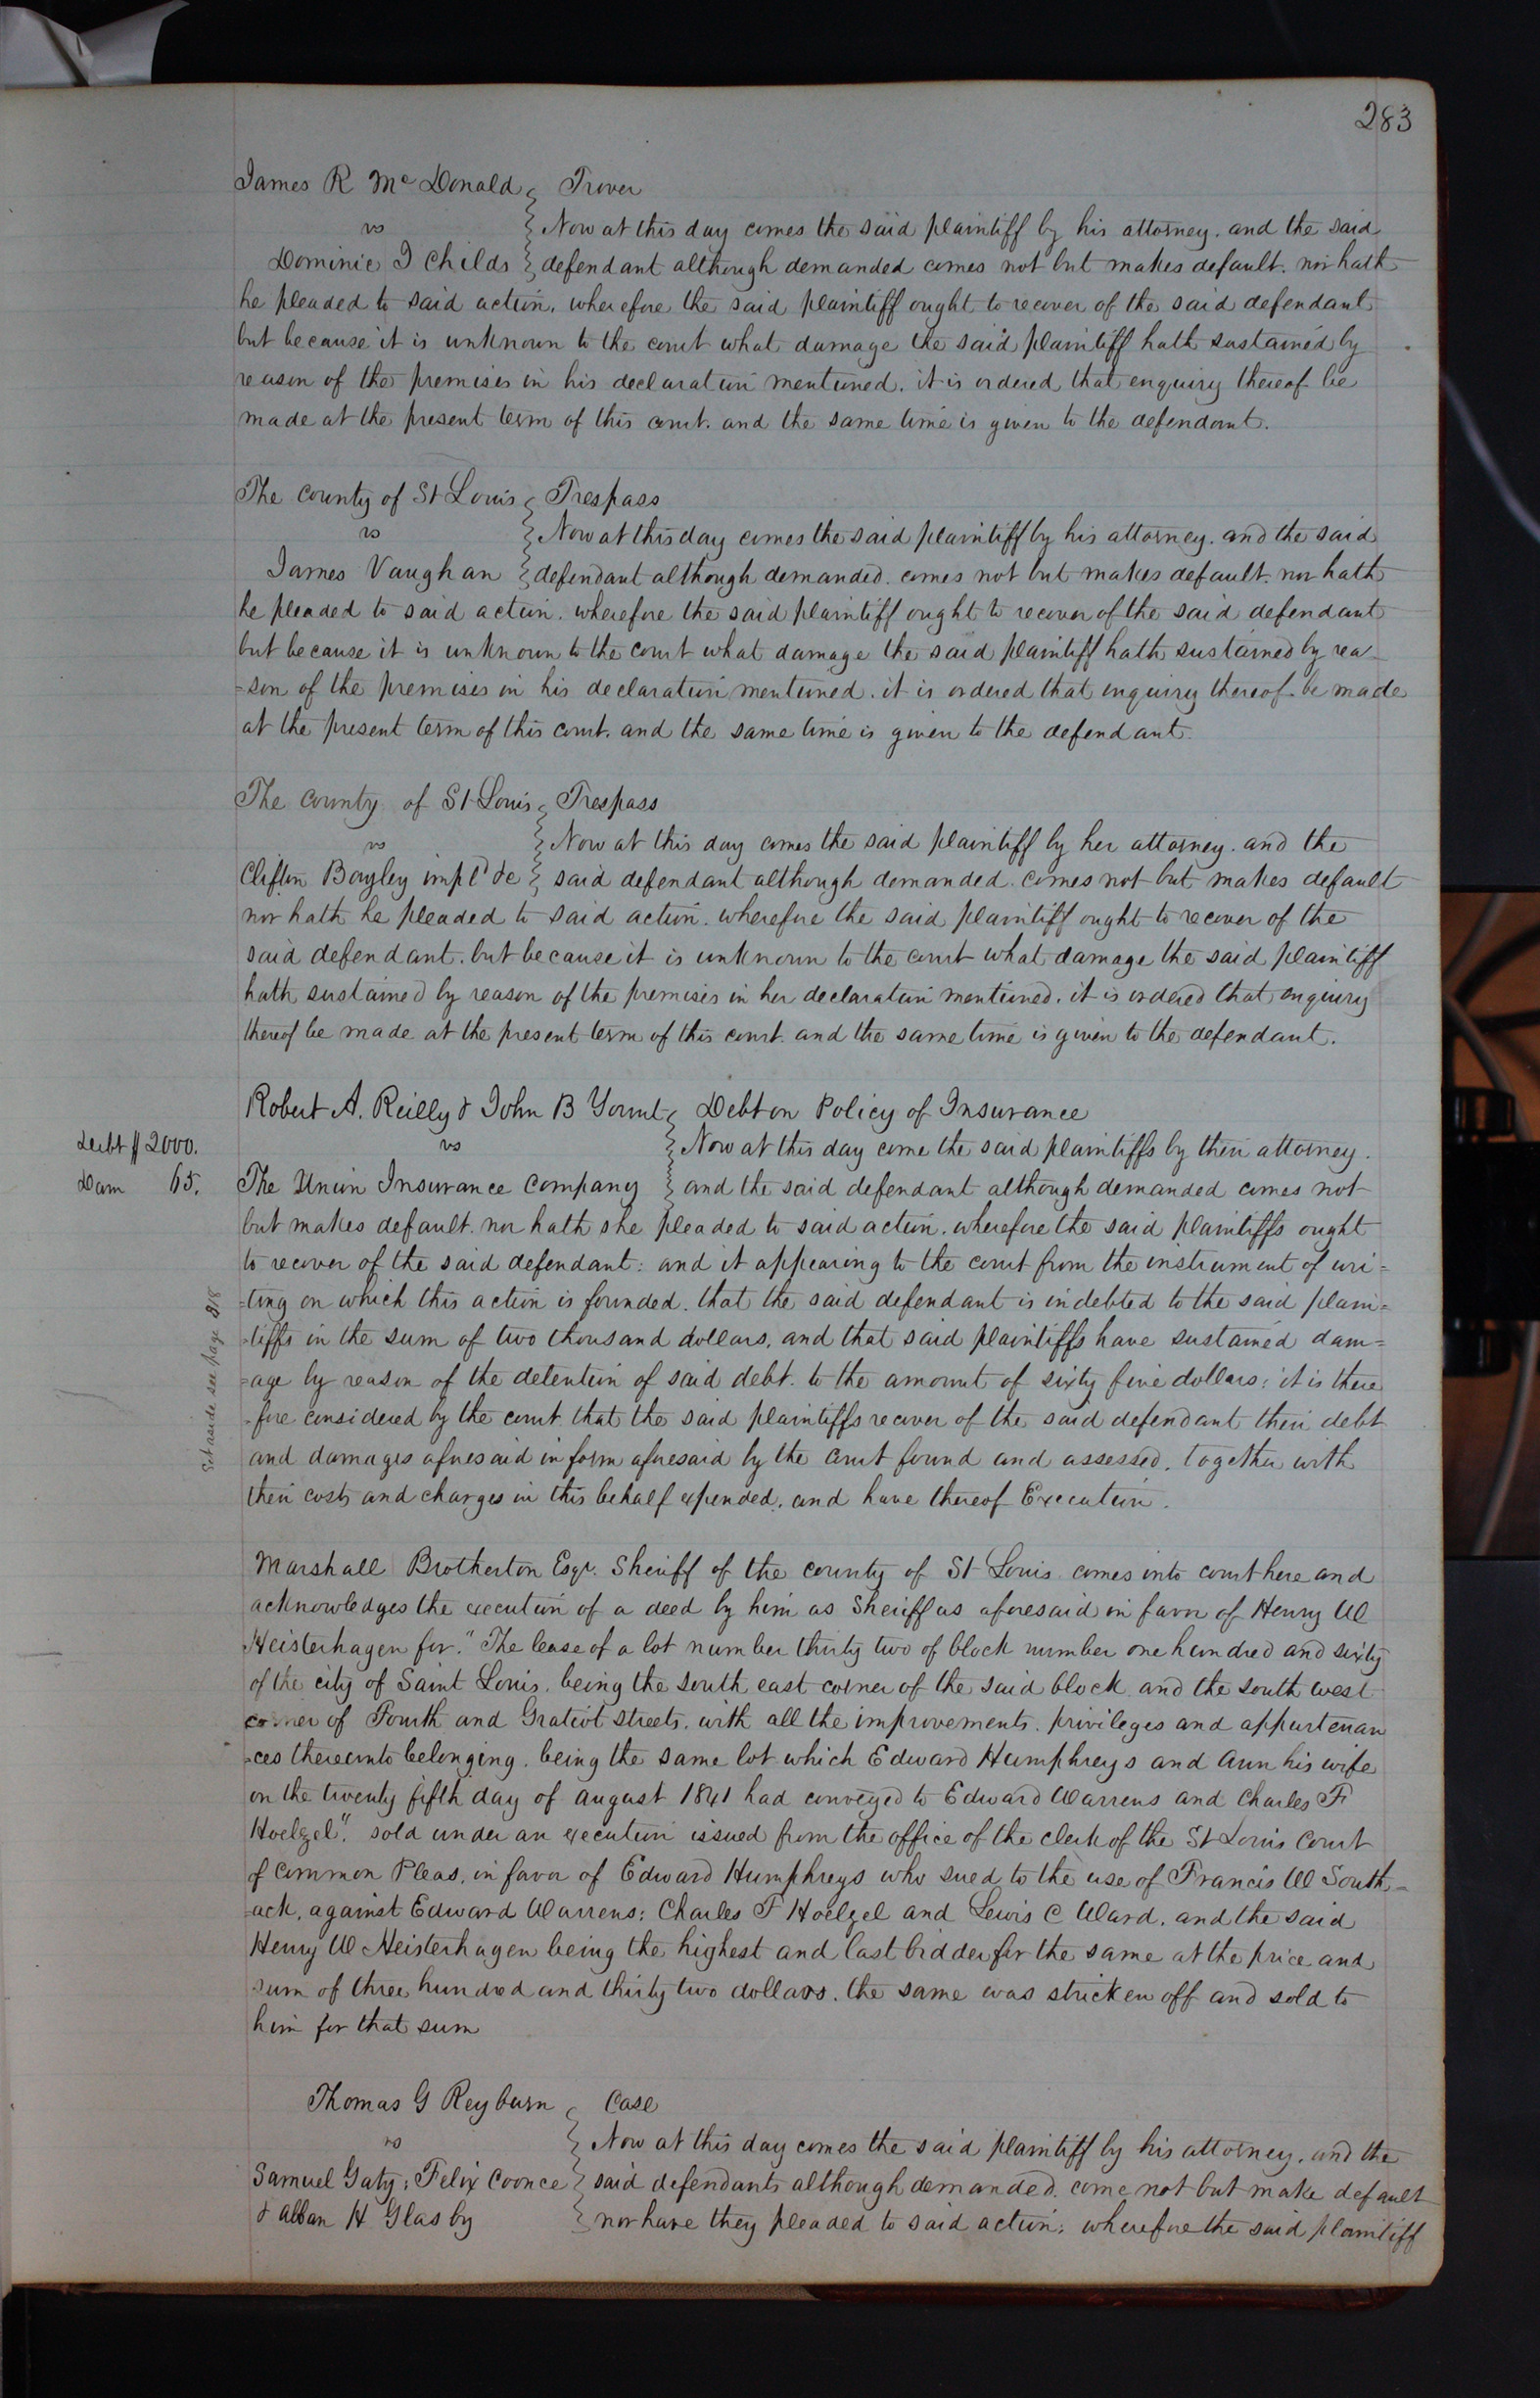 283
James R McDonald } Trover
vs } Now at this day comes the said plaintiff by his attorney. and the said
Dominic J Childs } defendant although demanded comes not but makes default. nor hath
he pleaded to said action. wherefore the said plaintiff ought to recover of the said defendant
but because it is unknown to the court what damage the said plaintiff hath sustained by
reason of the premises in his declaration mentioned. it is ordered that enquiry thereof be
made at the present term of this court. and the same time is given to the defendant.
The County of St Louis } Trespass
vs } Now at this day comes the said plaintiff by his attorney. and the said
James Vaughan } defendant although demanded. comes not but makes default. nor hath
he pleaded to said action. wherefore the said plaintiff ought to recover of the said defendant
but because it is unknown to the court what damage the said plaintiff hath sustained by rea
=son of the premises in his declaration mentioned. it is ordered that enquiry thereof be made
at the present term of this court. and the same time is given to the defendant.
The County of St Louis } Trespass
vs } Now at this day comes the said plaintiff by her attorney. and the
Clifton Bayley impl'd &c } said defendant although demanded. comes not but makes default
nor hath he pleaded to said action. wherefore the said plaintiff ought to recover of the
said defendant. but because it is unknown to the court what damage the said plaintiff
hath sustained by reason of the premises in her declaration mentioned. it is ordered that enquiry
thereof be made at the present term of this court. and the same time is given to the defendant.
Robert A. Reilly & John B Yount } Debt on Policy of Insurance
Debt $2000.
vs } Now at this day come the said plaintiffs by their attorney.
Dam 65.
The Union Insurance Company } and the said defendant although demanded comes not
but makes default. nor hath she pleaded to said action. wherefore the said plaintiffs ought
to recover of the said defendant: and it appearing to the court from the instrument of wri=
=ting on which this action is founded. that the said defendant is indebted to the said plain=
=tiffs in the sum of two thousand dollars. and that said plaintiffs have sustained dam=
=age by reason of the detention of said debt. to the amount of sixty five dollars: it is there
=fore considered by the court that the said plaintiffs recover of the said defendant their debt
and damages aforesaid in form aforesaid by the court found and assessed. together with
their costs and charges in this behalf expended. and have thereof Execution.
Set aside see page 318
Marshall Brotherton Esqr. Sheriff of the county of St Louis comes into court here and
acknowledges the execution of a deed by him as Sheriff as aforesaid in favor of Henry W
Heisterhagen for. "The lease of a lot number thirty two of block number one hundred and sixty
of the city of Saint Louis. being the south east corner of the said block and the south west
corner of Fourth and Gratiot streets. with all the improvements. privileges and appurtenan
=ces thereunto belonging. being the same lot which Edward Humphreys and Ann his wife
on the twenty fifth day of August 1841 had conveyed to Edward Warrens and Charles F
Hoelzel". sold under an execution issued from the office of the clerk of the St Louis Court
of Common Pleas. in favor of Edward Humphreys who sued to the use of Francis W South=
=ack. against Edward Warrens: Charles F Hoelzel and Lewis C Ward. and the said
Henry W Heisterhagen being the highest and last bidder for the same at the price and
sum of three hundred and thirty two dollars. the same was stricken off and sold to
him for that sum
Thomas G Reyburn } Case
vs } Now at this day comes the said plaintiff by his attorney. and the
Samuel Gaty: Felix Coonce } said defendants although demanded. come not but make default
& Alban H Glasby } nor have they pleaded to said action: wherefore the said plaintiff